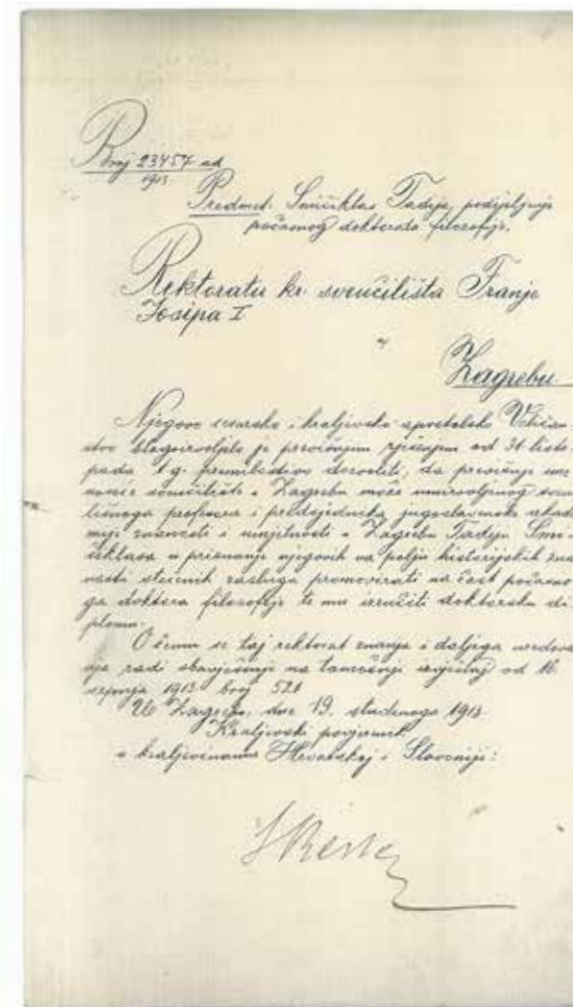 Broj 23457 ad
1913
Predmet: Smičiklas Tadija, podijeljenje
počasnog doktorata filozofije.
Rektoratu kr. sveučilišta Franje
Josipa I
u
Zagrebu
Njegovo cesarsko i kraljevsko apostolsko Veličan-
stvo blagoizvoljelo je previšnjim rješenjem od 31 listo-
pada t. g. premilostivo dozvoliti, da
sveučilište u Zagrebu može umirovljenog sveu-
čilišnoga profesora i predsjednika jugoslavenske akade-
mije znanosti i umjetnosti u Zagrebu Tadiju Smi-
čiklasa u priznanje njegovih na polju historijskih zna-
nosti stečenih zasluga promovirati na čast počasno-
ga doktora filozofije te mu izručiti doktorsku di-
plomu.
O čemu se taj rektorat znanja i daljega uredova-
nja radi obavješćuje na tamošnji izvještaj od 16
srpnja 1913 broj 521
U Zagrebu, dne 19. studenoga 1913
Kraljevski povjerenik
u kraljevinama Hrvatskoj i Slavoniji: